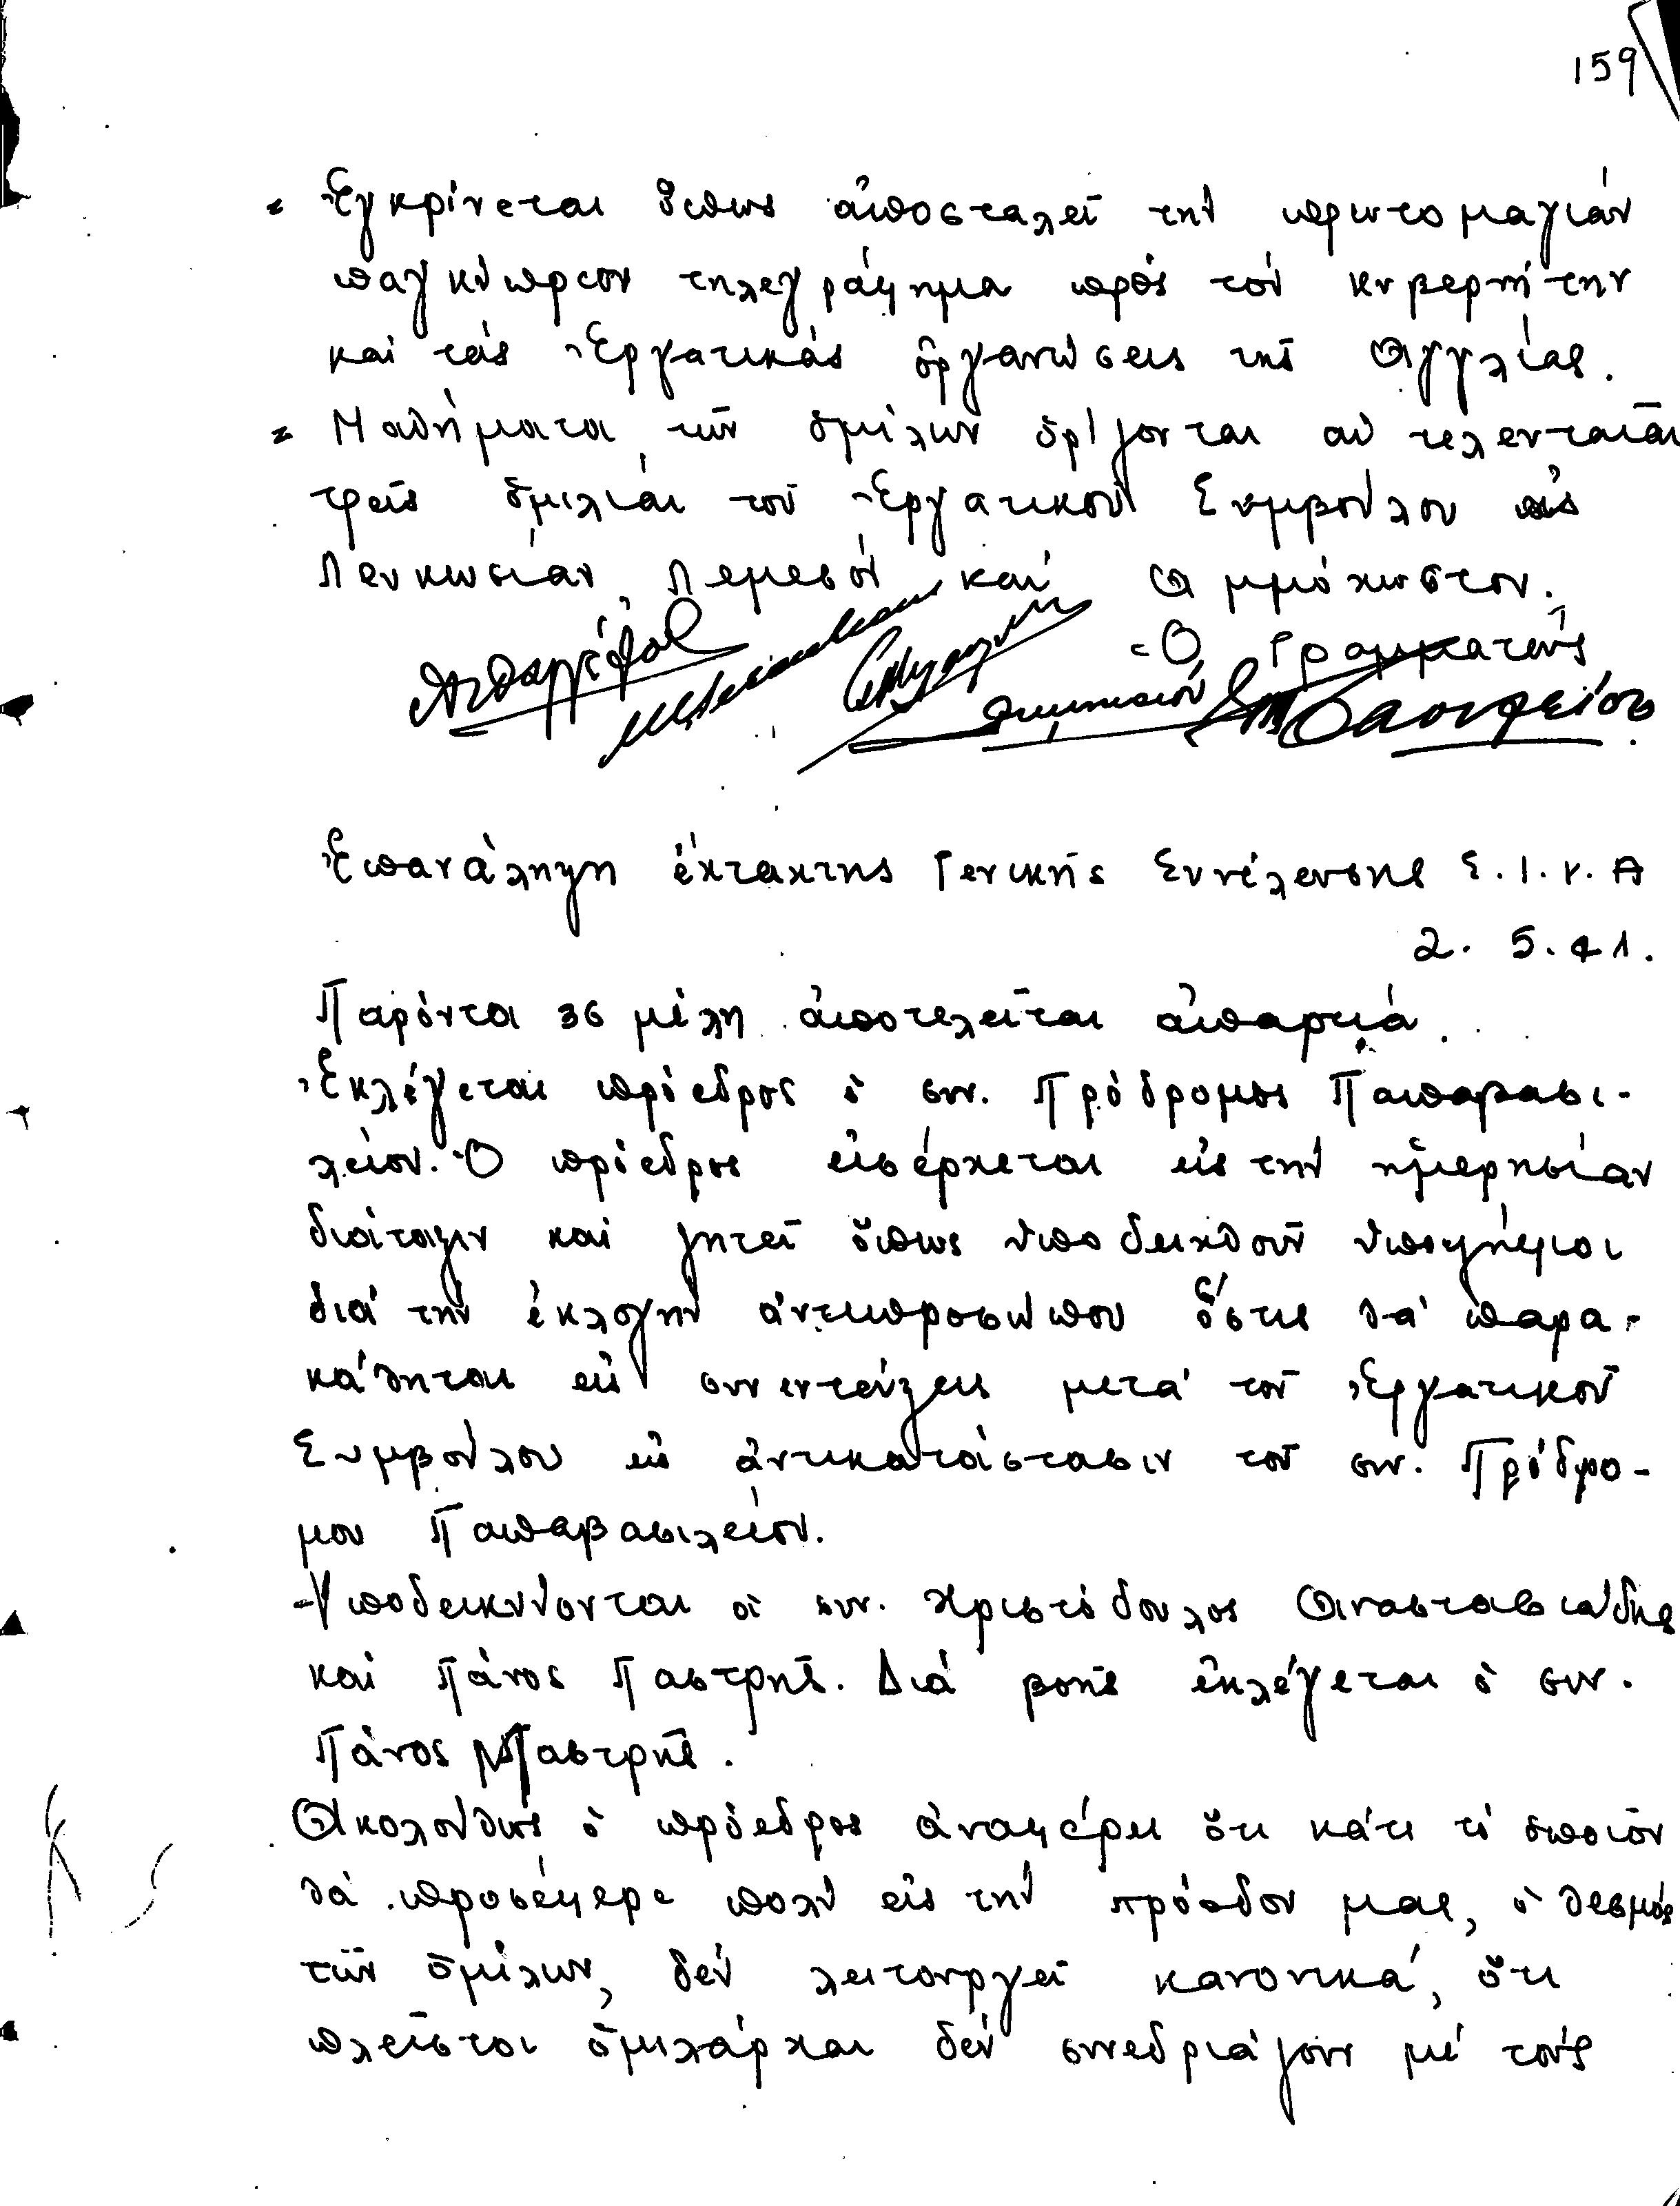 159
Ἐγκρίνεται ὅπως ἀποσταλεῖ τὴν πρωτομαγιάν
παγκύπριον τηλεγράφημα πρὸς τὸν κυβερνήτην
καὶ τὰς Ἐργατικὰς ὀργανώσεις τῆς Ἀγγλίας.
Μαθήματα τῶν ὁμίλων ὁρίζονται αἱ τελευταῖαι
τρεῖς ὁμιλίαι τοῦ Ἐργατικοῦ Συμβούλου εἰς
Λευκωσίαν, Λεμεσὸν καὶ Ἀμμόχωστον.
Ὁ Γραμματεὺς
Ἐπανάληψη ἐκτάκτης Γενικῆς Συνέλευσης Σ.Ι.Κ.Α
2. 5. 41.
Παρόντα 36 μέλη ἀποτελεῖται ἀπαρτία.
Ἐκλέγεται πρόεδρος ὁ συν. Πρόδρομος Παπαβασι-
λείου. Ὁ πρόεδρος εἰσέρχεται εἰς τὴν ἡμερησίαν
διάταξιν καὶ ζητεῖ ὅπως ὑποδειχθοῦν ὑποψήφιοι
διὰ τὴν ἐκλογὴν ἀντιπροσώπου ὅστις θὰ παρα-
κάθηται εἰς συνεντεύξεις μετὰ τοῦ Ἐργατικοῦ
Συμβούλου εἰς ἀντικατάστασιν τοῦ συν. Πρόδρο-
μου Παπαβασιλείου.
Ὑποδεικνύονται οἱ συν. Χριστόδουλος Ἀναστασιάδης
καὶ Πάνος Παστρῆς. Διὰ βοῆς ἐκλέγεται ὁ συν.
Πάνος Παστρῆς.
Ἀκολούθως ὁ πρόεδρος ἀναφέρει ὅτι κάτι τὸ ὁποῖον
θὰ προσέφερε πολὺ εἰς τὴν πρόοδον μας, ὁ θεσμὸς
τῶν ὁμίλων, δὲν λειτουργεῖ κανονικά, ὅτι
πλεῖστοι ὁμιλάρχαι δὲν συνεδριάζουν μὲ τοὺς